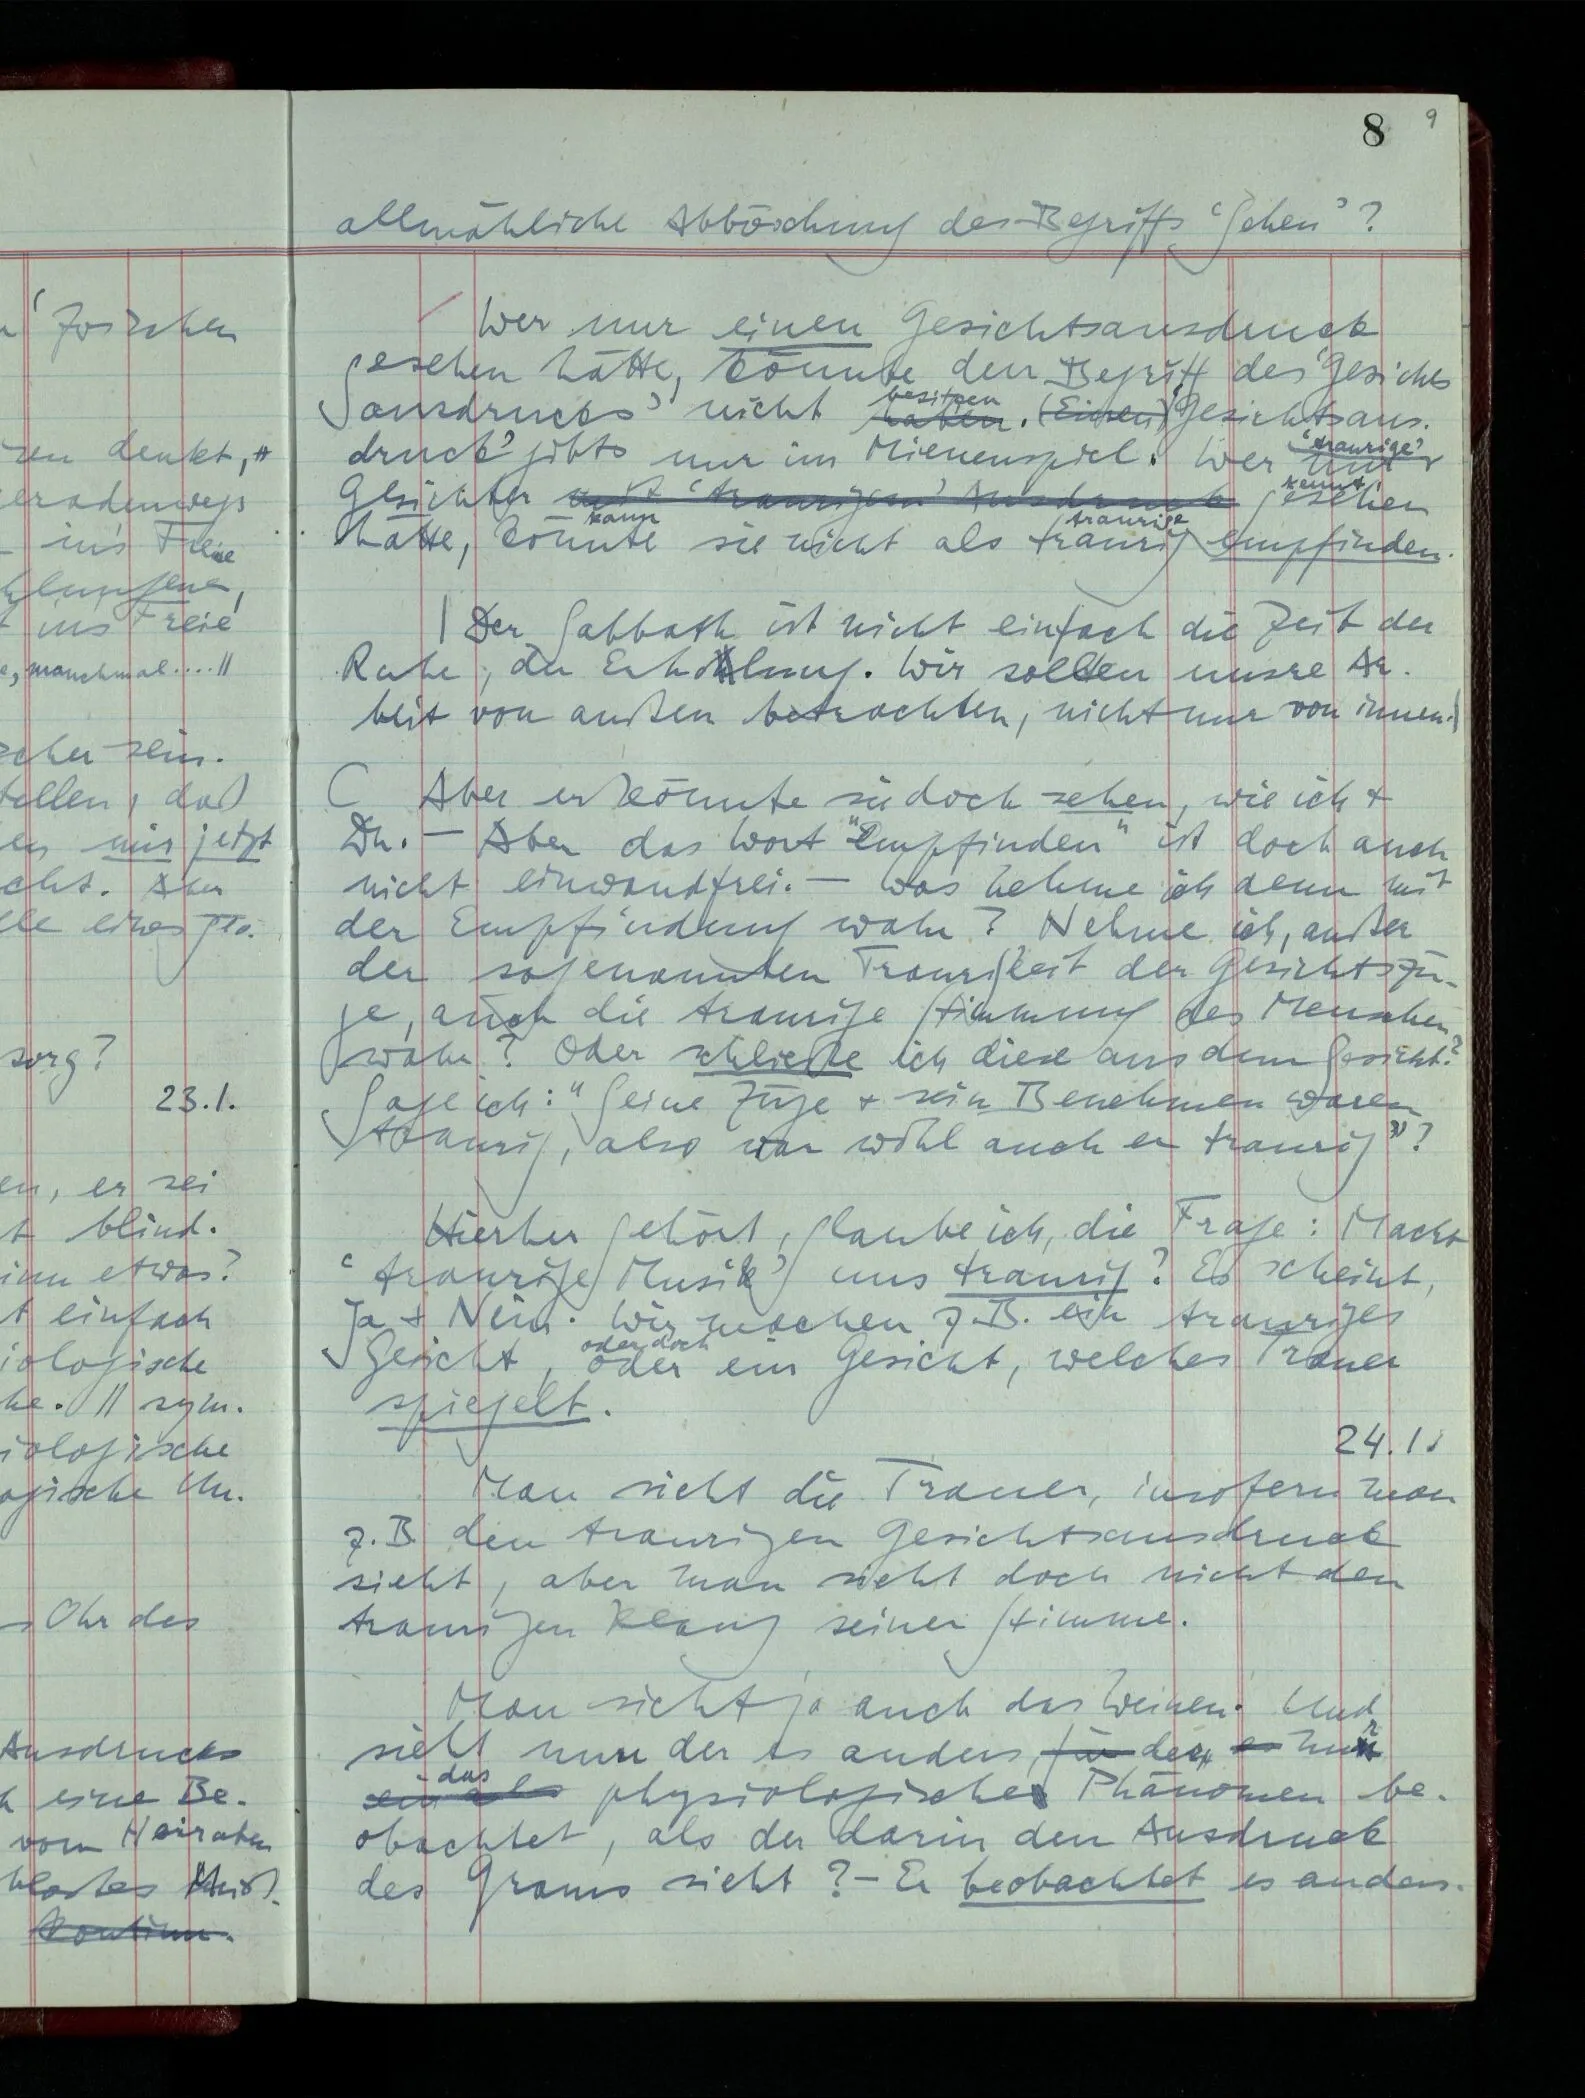 8 9
allmähliche Abböschung des Begriffs ‘sehen’?
Wer nur einen Gesichtsausdruck
gesehen hätte, könnte den Begriff des ‘Gesichts
ausdrucks’ nicht haben. (Einen) ‘Gesichtsaus-
besitzen
druck’ gibts nur im Mienenspiel. Wer nur
‘traurige’
Gesichter mit ‘traurigem’ Ausdruck gesehen
kennt
hätte, könnte sie nicht als traurig empfinden.
kann traurige
| Der Sabbath ist nicht einfach die Zeit der
Ruhe, der Erholung. Wir sollten unsre Ar-
beit von außen betrachten, nicht nur von innen. |
C Aber er könnte sie doch sehen, wie ich &
Du. — Aber das Wort "Empfinden" ist doch auch
nicht einwandfrei. — Was nehme ich denn mit
der Empfindung wahr? Nehme ich, außer
der sogenannten Traurigkeit der Gesichtszü-
ge, auch die traurige Stimmung des Menschen
wahr? Oder schließe ich diese aus dem Gesicht?
Sage ich: "Seine Züge & sein Benehmen waren
traurig, also war wohl auch er traurig"?
Hierher gehört, glaube ich, die Frage: Macht
‘traurige Musik’ uns traurig? Es scheint,
Ja & Nein. Wir machen z.B. ein trauriges
Gesicht, oder ein Gesicht, welches Trauer
oder doch
spiegelt.
24.1.
Man sieht die Trauer, insofern man
z.B. den traurigen Gesichtsausdruck
sieht, aber man sieht doch nicht den
traurigen Klang seiner Stimme.
Man sieht ja auch das Weinen. Und
sieht nun der es anders, für der, es nur
ein als physiologisches Phänomen be-
das
obachtet, als der darin den Ausdruck
des Grams sieht? — Er beobachtet es anders.
zwischen
denkt,
geradenwegs
ins Freie
ins Freie
manchmal....||
sein.
daß
mir jetzt
Aber
eines
sorg?
23.1.
er sei
blind.
etwas?
einfach
|| sym-
Ohr des
Ausdrucks
eine Be-
vom Heiraten